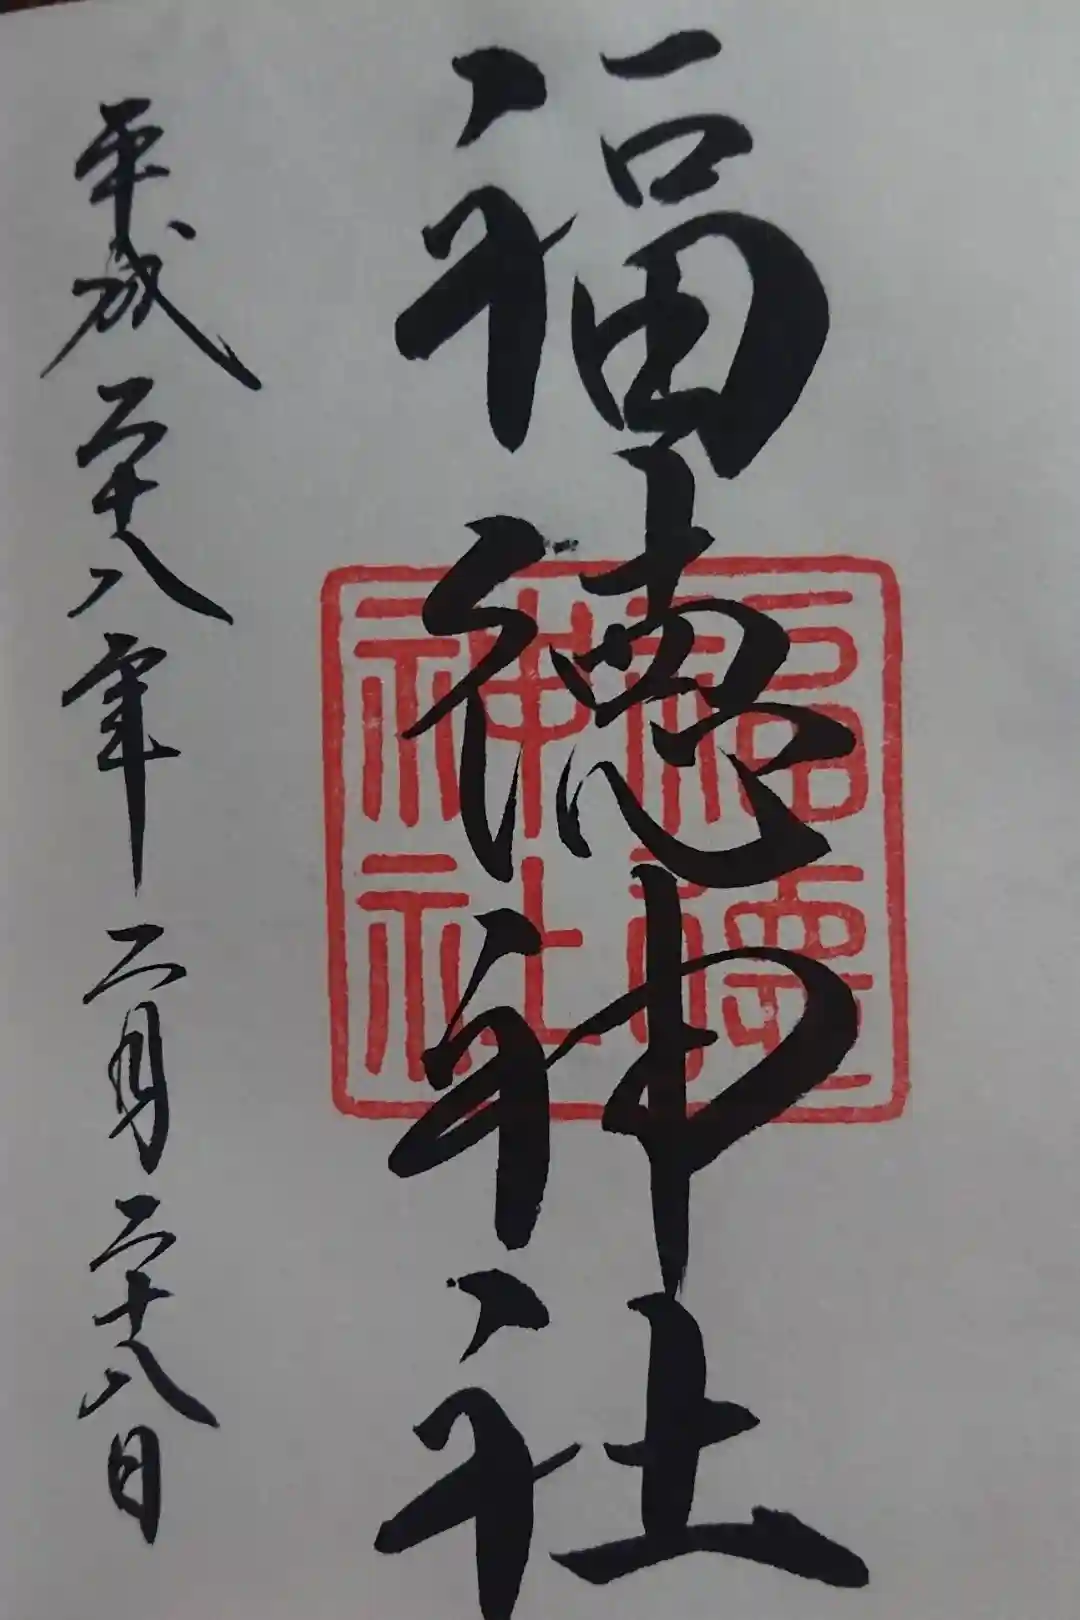 福徳神社
福徳
神社
平成二十八年二月二十八日